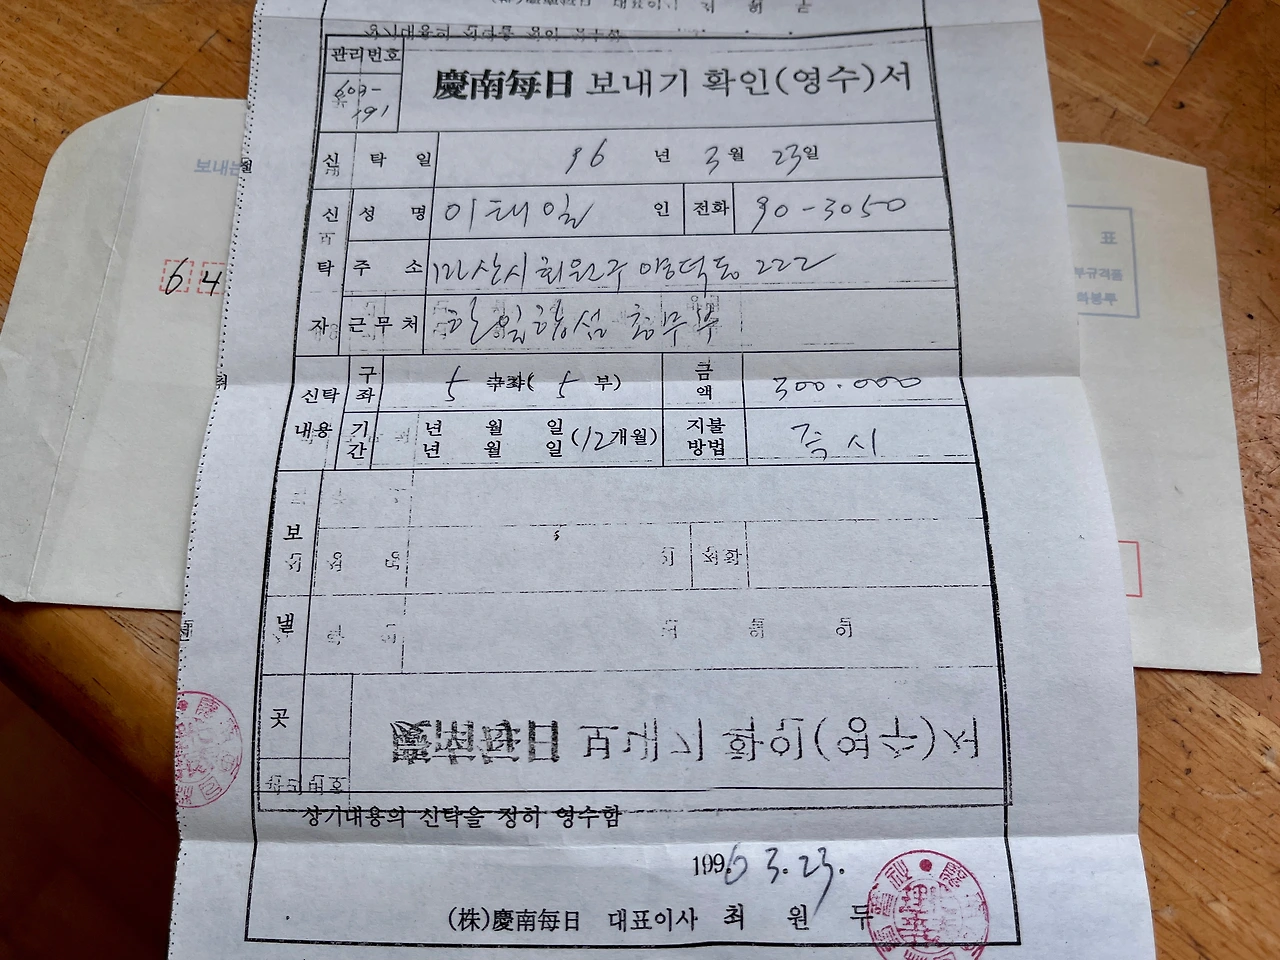 관리번호
慶南每日 보내기 확인(영수)서
603-
191
신 탁 일 96 년 3월 23일
신 성 명 이태일 인 전화 90-3050
탁 주 소 마산시 회원구 양덕동 222
자 근무처 한일합섬 총무부
신탁 구좌 5 부) 금액 300.000
내용 기간 년 월 일
년 월 일 (12개월) 지불방법 즉시
보
낼
곳
慶南每日 보내기 확인(영수)서
상기내용의 신탁을 정히 영수함
1996 3. 23.
(株)慶南每日 대표이사 최 원 두
보내는
64
표
부규격품